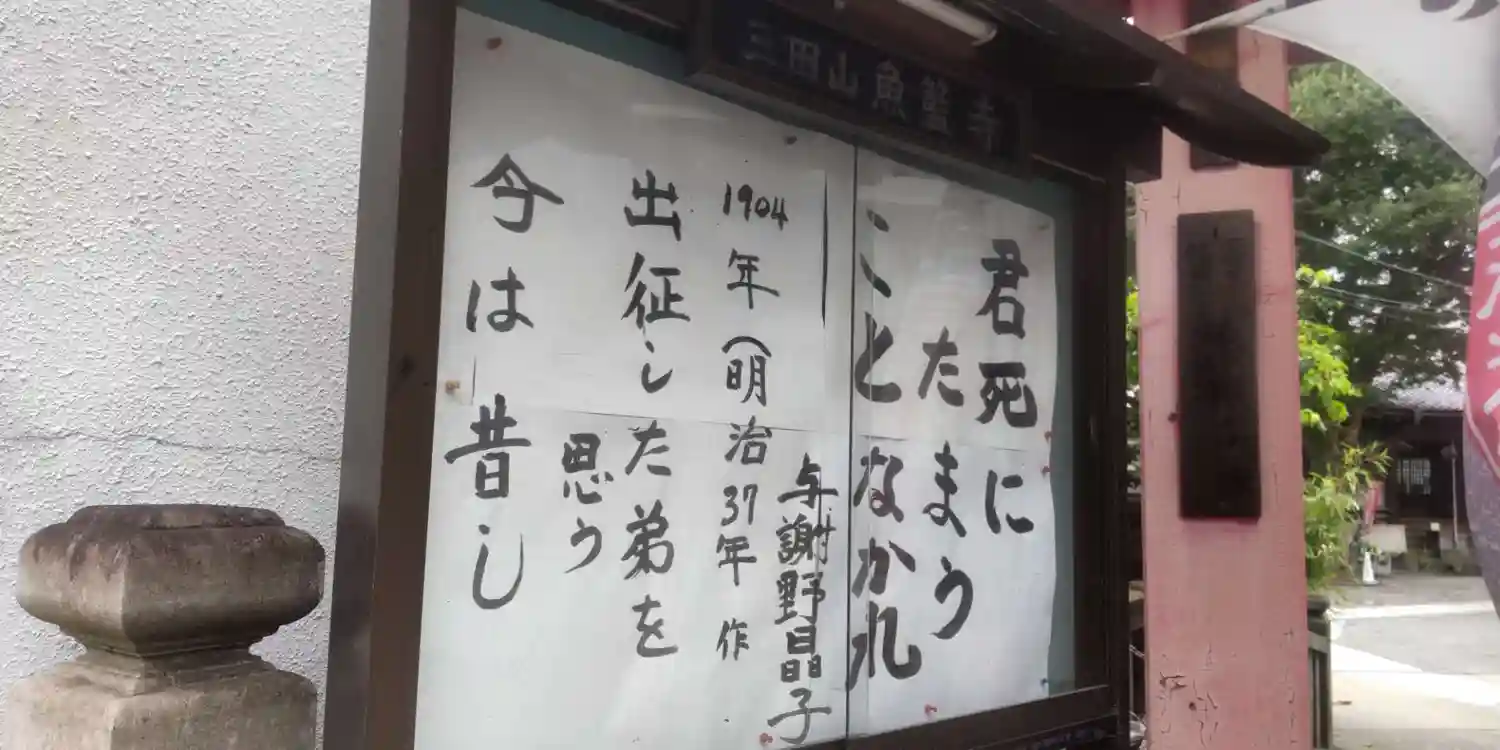 三田山魚籃寺
君死に
たまう
ことなかれ
与謝野晶子
1904年(明治37年作
出征した弟を
思う
今は昔し